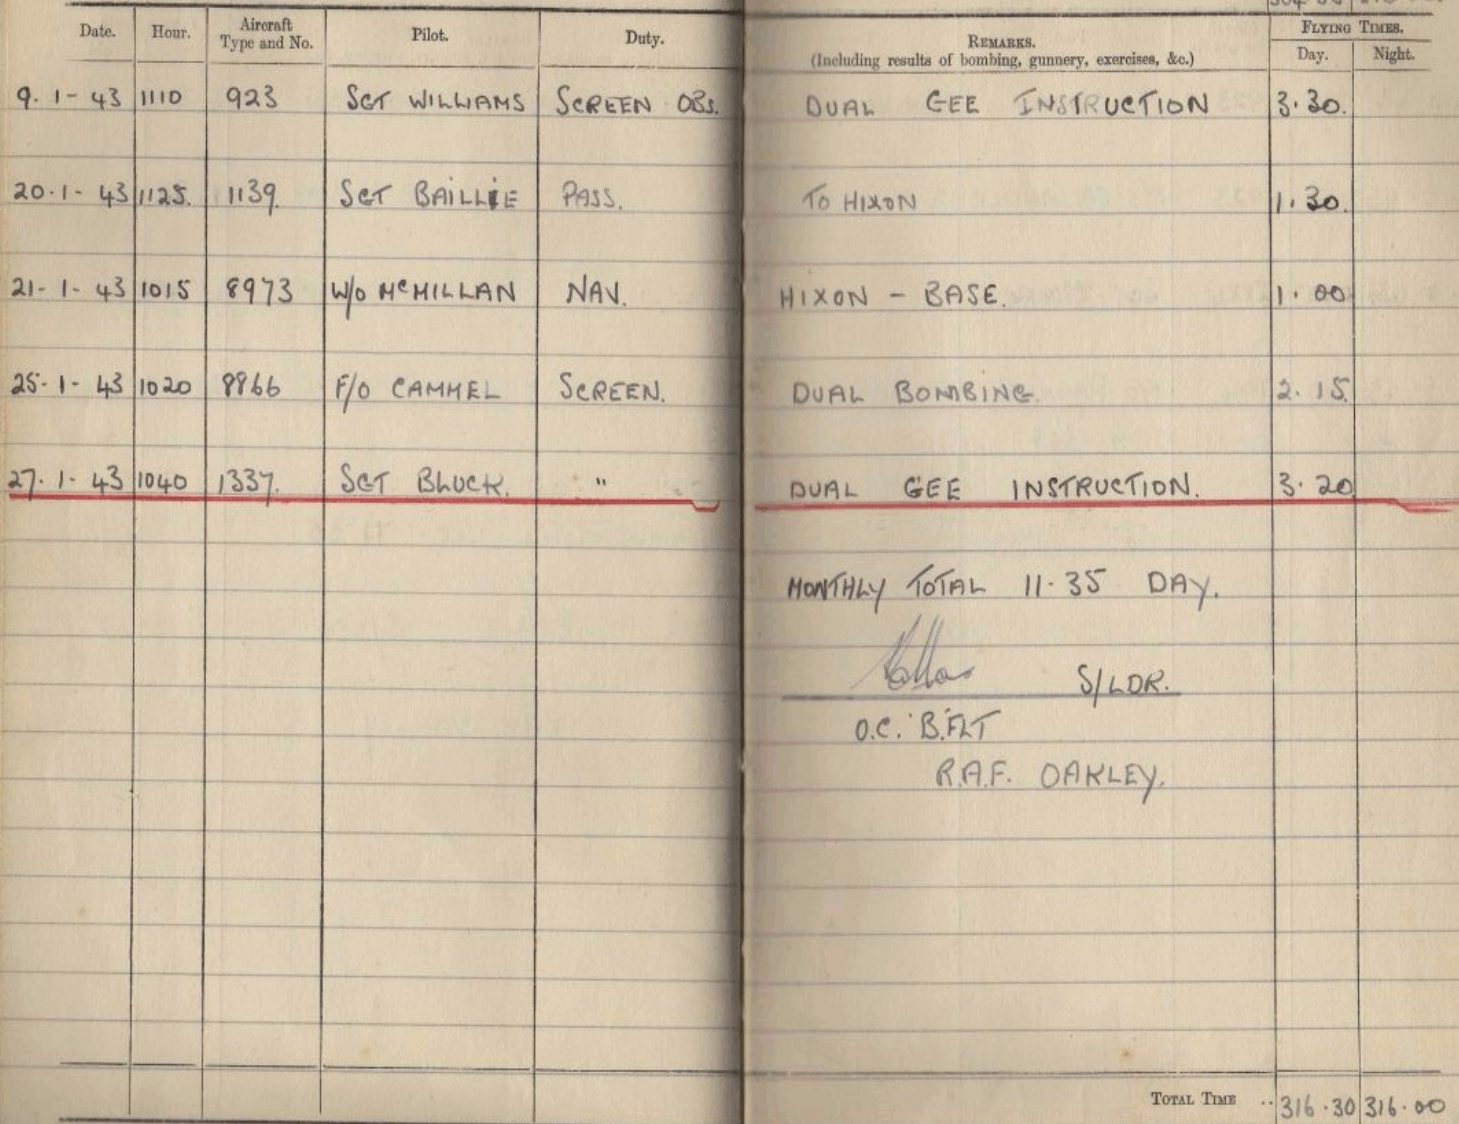 Date. Hour. Aircraft Type and No. Pilot. Duty. REMARKS. (Including results of bombing, gunnery, exercises, &c.) FLYING TIMES. Day. Night.
9.1-43 1110 923 SGT WILLIAMS SCREEN OBS. DUAL GEE INSTRUCTION 3.30.
20.1-43 1125. 1139. SGT BAILLIE PASS. TO HIXON 1.30.
21-1-43 1015 8973 W/O McMILLAN NAV. HIXON - BASE. 1.00
25-1-43 1020 8866 F/O CAMMEL SCREEN. DUAL BOMBING. 2.15.
27.1-43 1040 1337. SGT BLUCK. " DUAL GEE INSTRUCTION. 3.20
MONTHLY TOTAL 11.35 DAY.
S/LDR.
O.C. B.FLT
R.A.F. OAKLEY.
TOTAL TIME .. 316.30 316.00